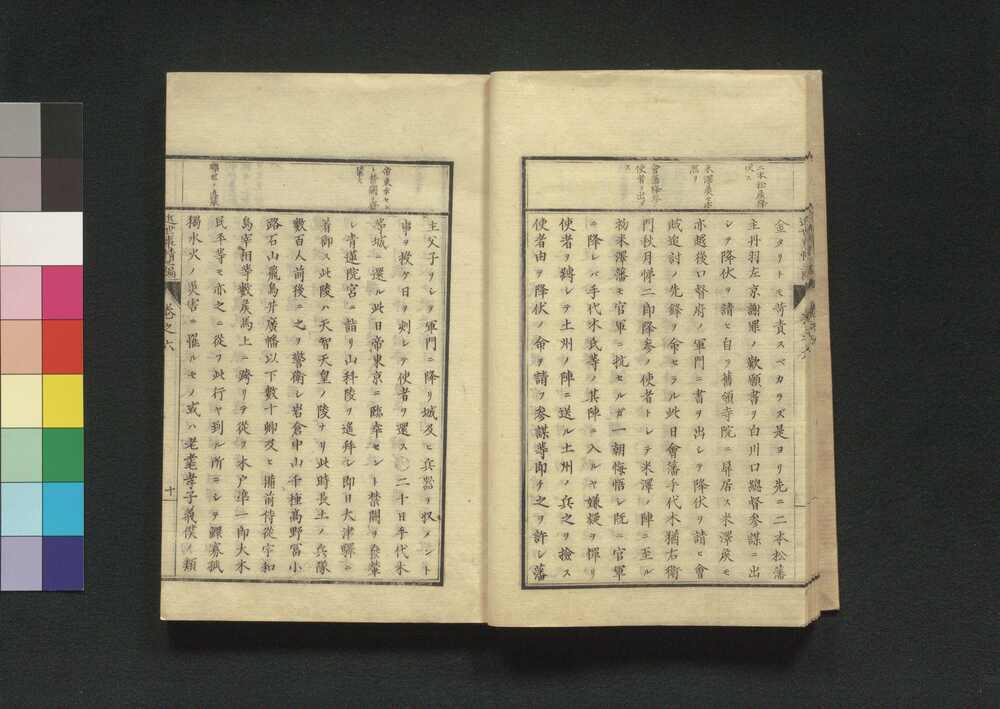 二本松侯降
伏ス
米澤侯モ亦
然リ
會藩降參
使者ヲ出ス
金タリトモ苛責スベカラズ是ヨリ先ニ二本松藩
主丹羽左京謝罪ノ歎願書ヲ白川口總督參謀ニ出
シテ降伏ヲ請ヒ自ラ舊領寺院ニ屏居ス米澤侯モ
亦越後口督府ノ軍門ニ書ヲ出シテ降伏ヲ請ヒ會
賊追討ノ先鋒ヲ命セラル此日會藩手代木猶右衛
門秋月悌二郎降參ノ使者トシテ米澤ノ陣ニ至ル
初米澤藩モ官軍ニ抗セルガ一朝悔悟シ既ニ官軍
ニ降レバ手代木氏等ノ其陣ニ入ルヤ嫌疑ヲ憚リ
使者ヲ縛シテ土州ノ陣ニ送ル土州ノ兵之ヲ撿ス
使者由ヲ降伏ノ命ヲ請フ參謀等即チ之ヲ許シ藩
帝東幸セン
ト禁闕ヲ發
輦ス
主父子ヲシテ軍門ニ降リ城及ヒ兵器ヲ収メント
事ヲ授ケ日ヲ刻シテ使者ヲ還ス〇二十日手代木
等城ニ還ル此日帝東京ニ臨幸セント禁闕ヲ發輦
シ青蓮院宮ニ詣リ山科陵ヲ遙拜シ即日大津驛ニ
着御ス此陵ハ天智天皇ノ陵ナリ此時長土ノ兵隊
數百人前後ニ之ヲ警衛シ岩倉中山千種高野富小
路石山飛鳥井廣幡以下數十卿及ヒ備前侍從宇和
島宰相等數侯馬上ニ跨リテ從ヲ木戸準一郎大木
民平等モ亦之ニ從フ此行ヤ到ル所ニシテ鰥寡孤
獨水火ノ災害ニ罹ルモノ或ハ老耄孝子義僕ノ類
近世事情三編
巻之六
十